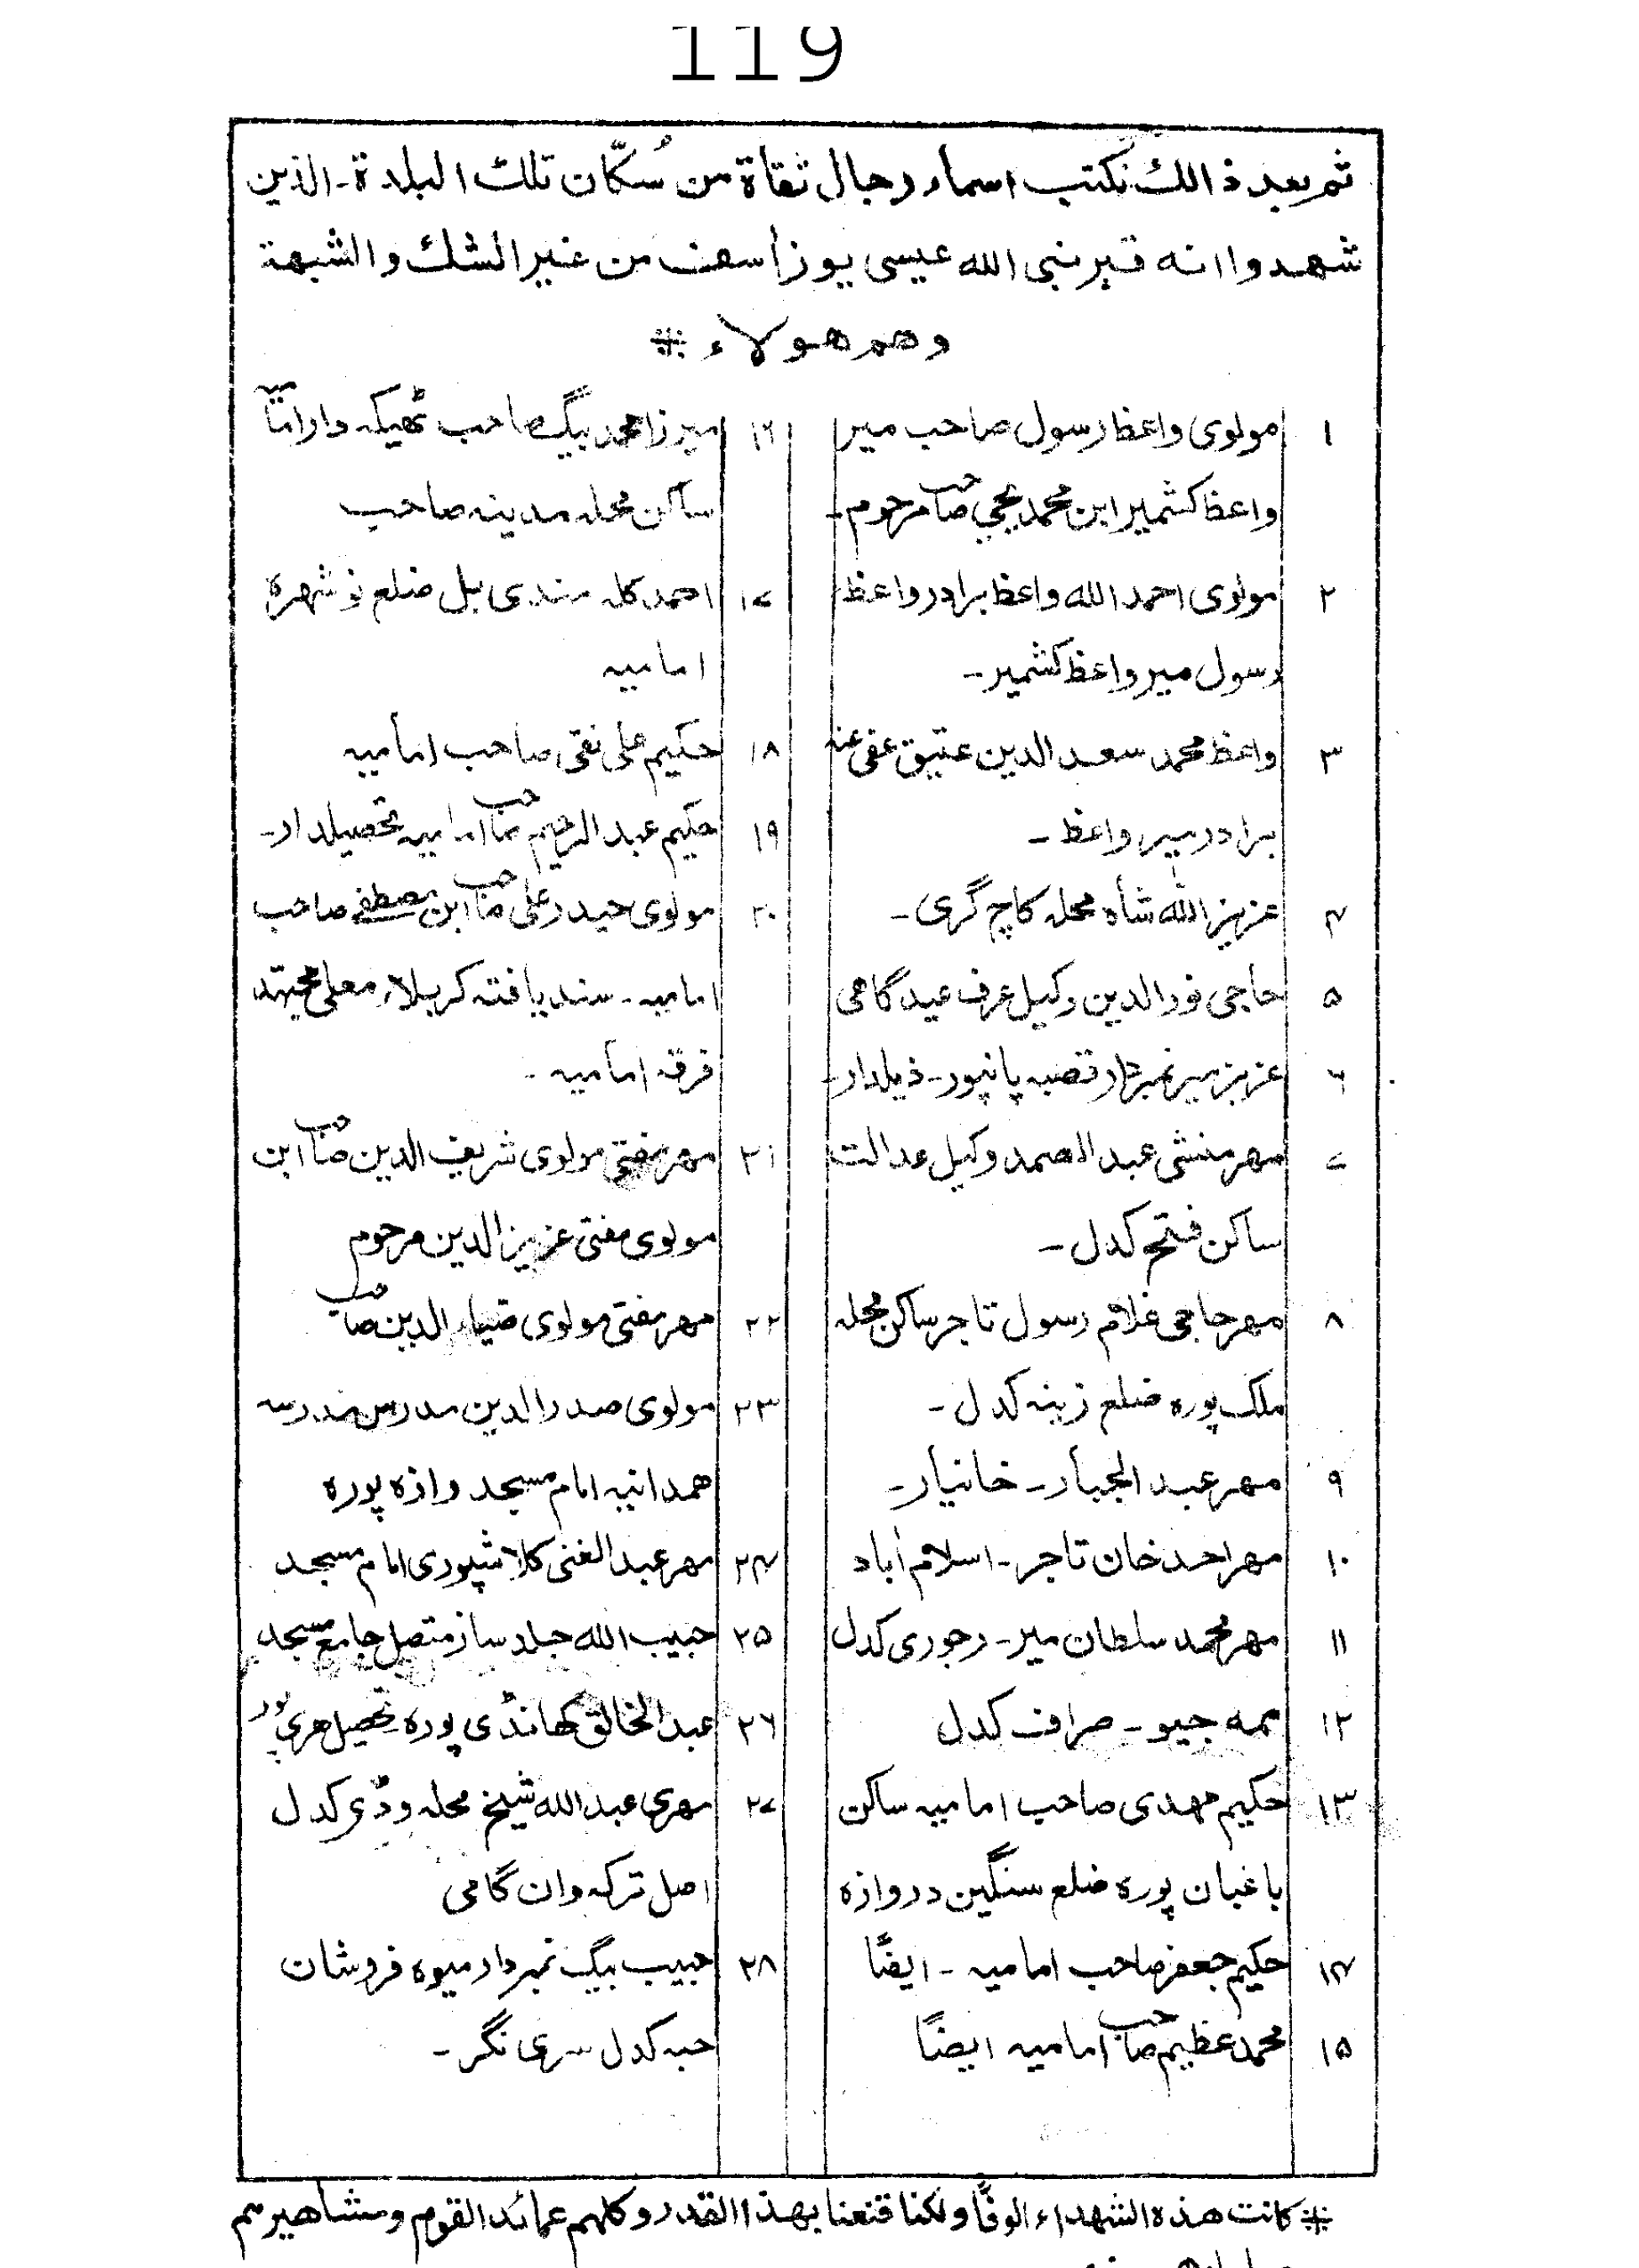 119
ثم بعد ذالك نكتب اسماء رجال ثقاة من سُكّان تلك البلدة ـ الذين
شهدوا انه قبر نبى الله عيسى يوز أسف من غير الشك والشبهة
وهم هولاء #
۱ مولوی واعظ رسول صاحب میر
واعظ کشمیر ابن محمد یحیٰی صاحب مرحوم۔
۲ مولوی احمد الله واعظ برادر واعظ
رسول میر واعظ کشمیر۔
۳ واعظ محمد سعد الدین عتیق عفی عنہ
برادر میر واعظ۔
۴ عزیز الله شاہ محلہ کاچ گری۔
۵ حاجی نور الدین وکیل عرف عید گاہی
۶ عزیز میر نمبردار قصبہ پانپور۔ ذیلدار۔
۷ مہر منشی عبد الصمد وکیل عدالت
ساکن فتح کدل۔
۸ مہر حاجی غلام رسول تاجر ساکن محلہ
ملک پورہ ضلع زینہ کدل۔
۹ مہر عبد الجبار۔ خانیار۔
۱۰ مہر احمد خان تاجر۔ اسلام اباد
۱۱ مہر محمد سلطان میر۔ رجوری کدل
۱۲ ممہ جیو۔ صراف کدل
۱۳ حکیم مهدی صاحب امامیہ ساکن
باغبان پورہ ضلع سنگین دروازہ
۱۴ حکیم جعفر صاحب امامیہ۔ ایضًا
۱۵ محمد عظیم صاحب امامیہ ایضًا
۱۶ میرزا محمد بیگ صاحب ٹھیکہ دار امامیہ
ساکن محلہ مدینہ صاحب
۱۷ احمد کلہ مندی بل ضلع نوشہرہ
امامیہ
۱۸ حکیم علی نقی صاحب امامیہ
۱۹ حکیم عبد الرحیم صاحب امامیہ تحصیلدار۔
۲۰ مولوی حیدر علی صاحب ابن مصطفی صاحب
امامیہ۔ سند یافتہ کربلاء معلی مجتہد
فرقہ امامیہ۔
۲۱ مہر مفتی مولوی شریف الدین صاحب ابن
مولوی مفتی عزیز الدین مرحوم
۲۲ مہر مفتی مولوی ضیاء الدین صاحب
۲۳ مولوی صدر الدین مدرس مدرسہ
همدانیہ امام مسجد وازہ پورہ
۲۴ مہر عبد الغنی کلاشپوری امام مسجد
۲۵ حبیب الله جلد ساز متصل جامع مسجد
۲۶ عبد الخالق کھانڈی پورہ تحصیل هری پور
۲۷ مہری عبد الله شیخ محلہ وڈی کدل
اصل ترکہ وان گامی
۲۸ حبیب بیگ نمبردار میوہ فروشان
حبہ کدل سری نگر۔
# كانت هذه الشهداء الوفًا ولكنا قنعنا بهذا القدر وكلهم عمائد القوم ومشاهيرهم